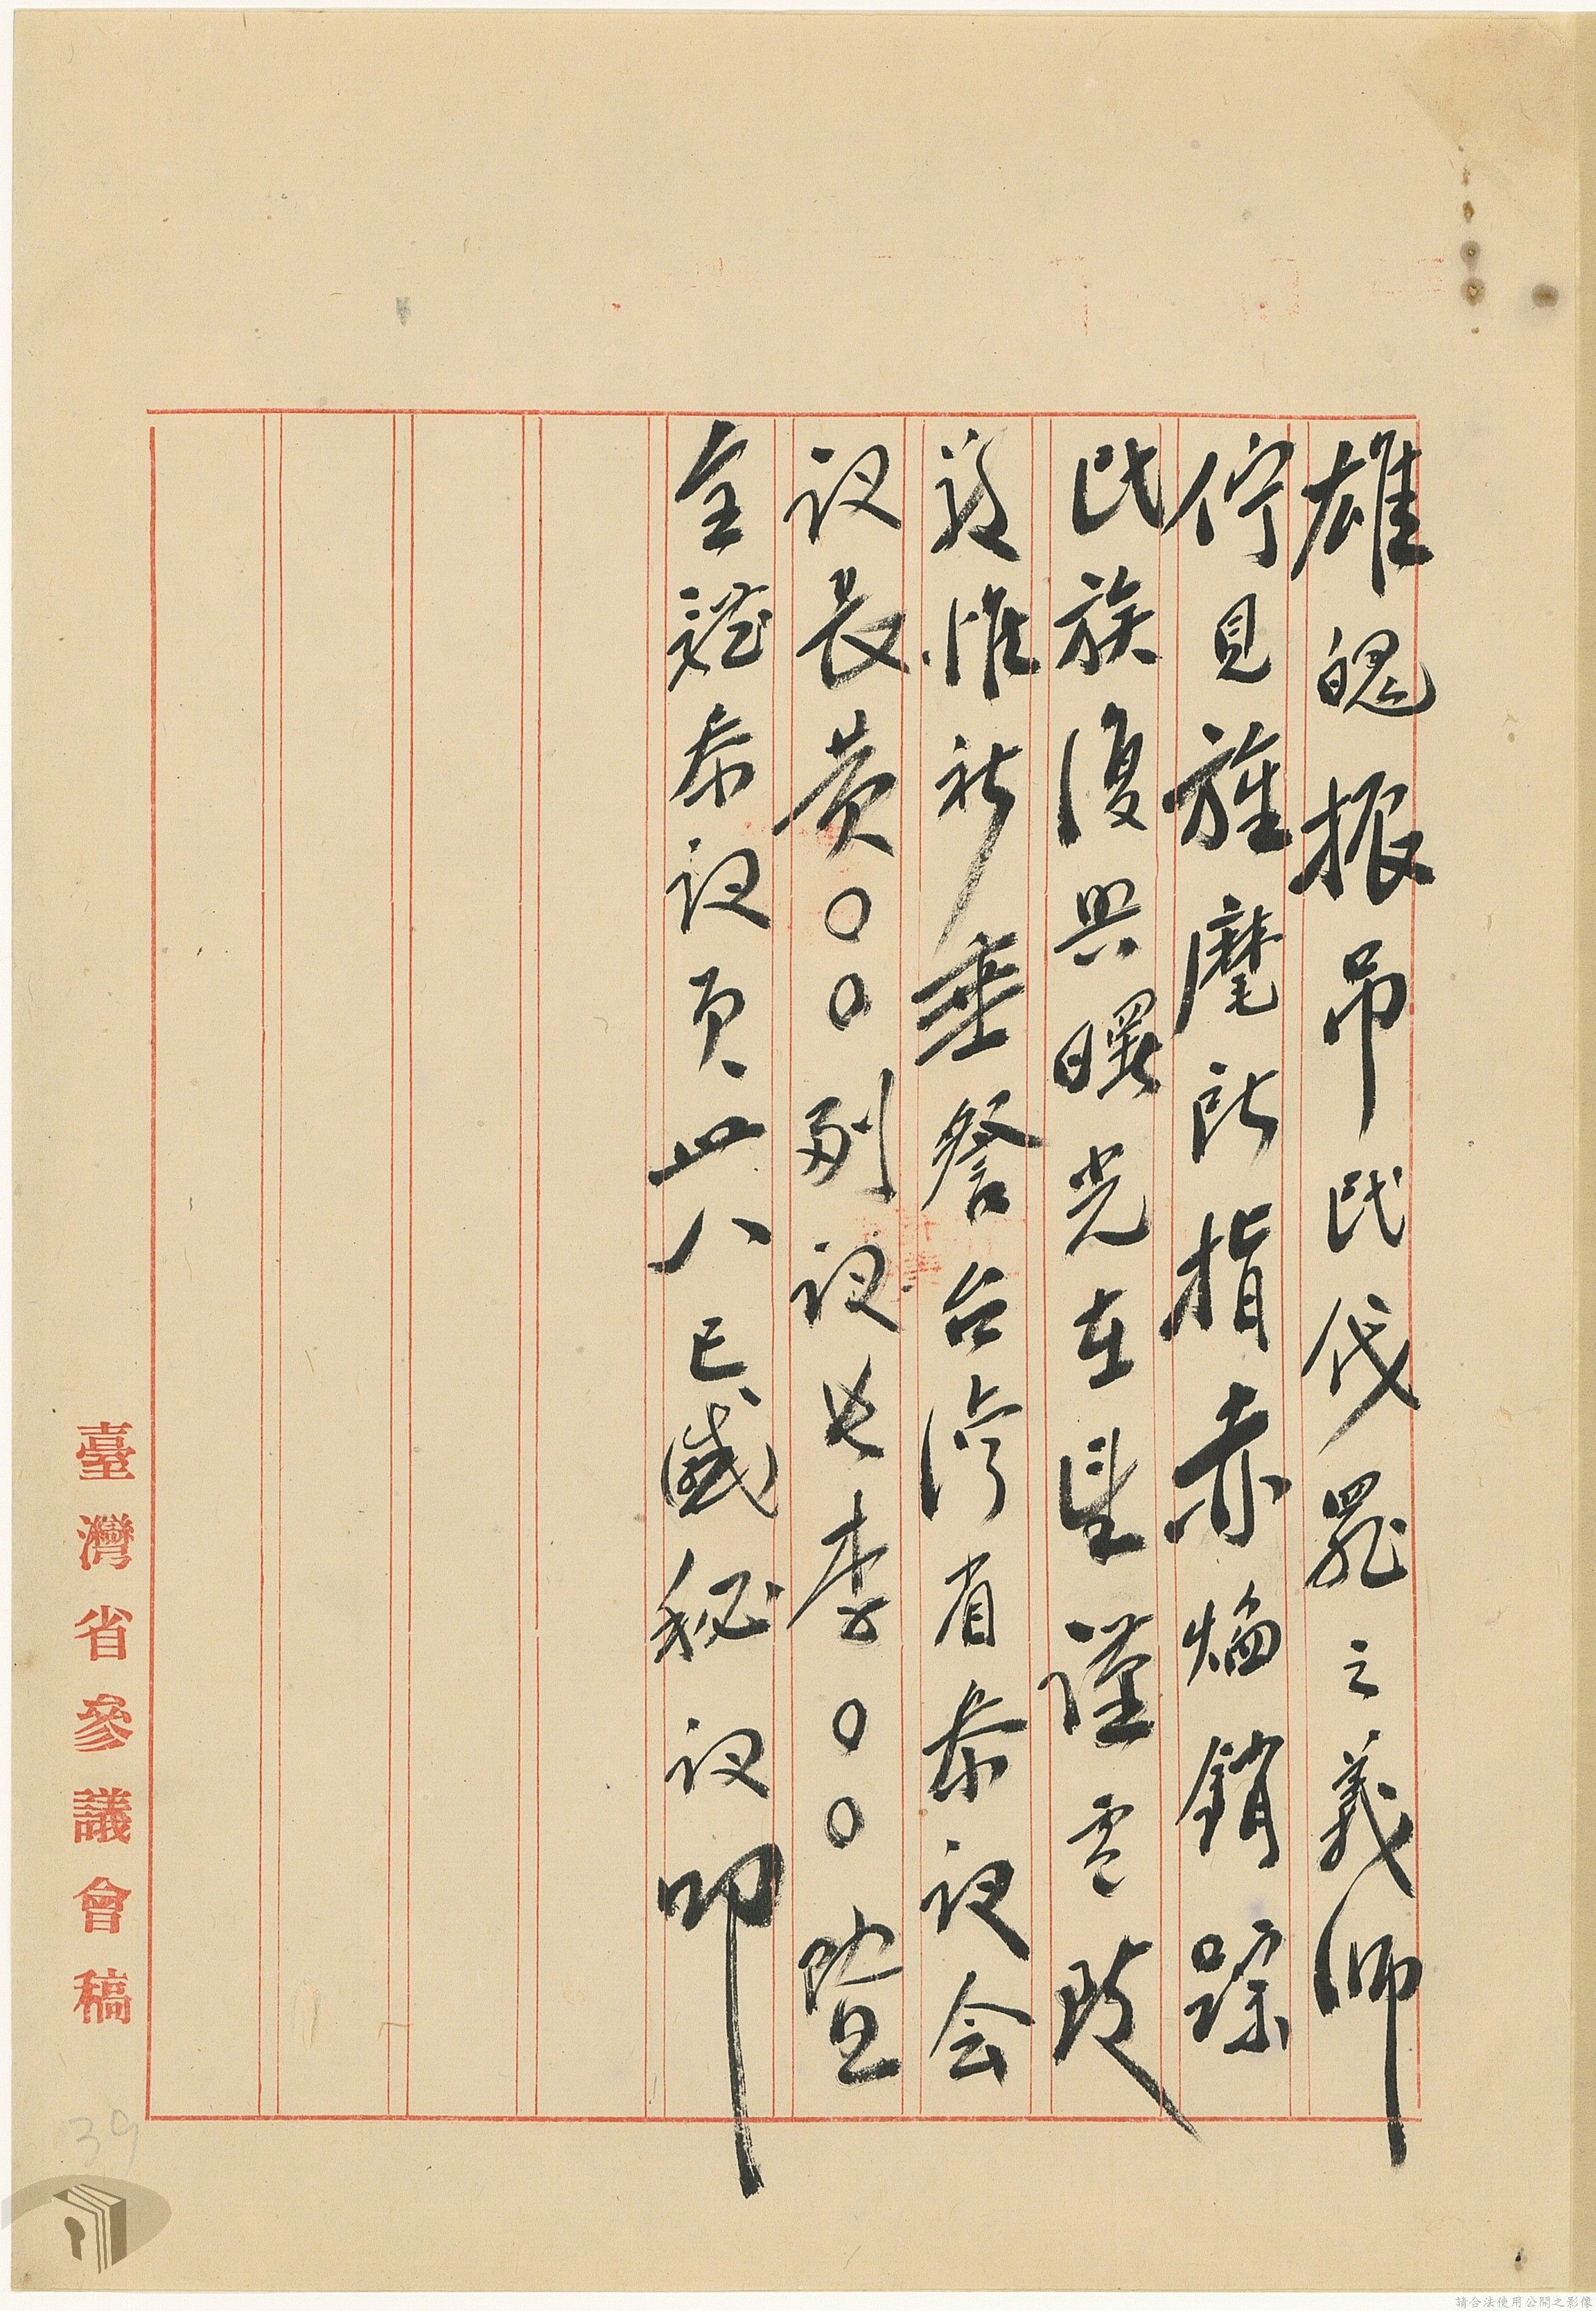 雄魄振吊民伐罪之義師
佇見旌麾所指赤焰銷踪
民族復興曙光在望謹電致
敬惟祈垂詧台灣省參議会
議長黄〇〇副議長李〇〇暨
全體參議員卅八巳感秘議叩
臺灣省參議會稿
39
請合法使用公開之影像